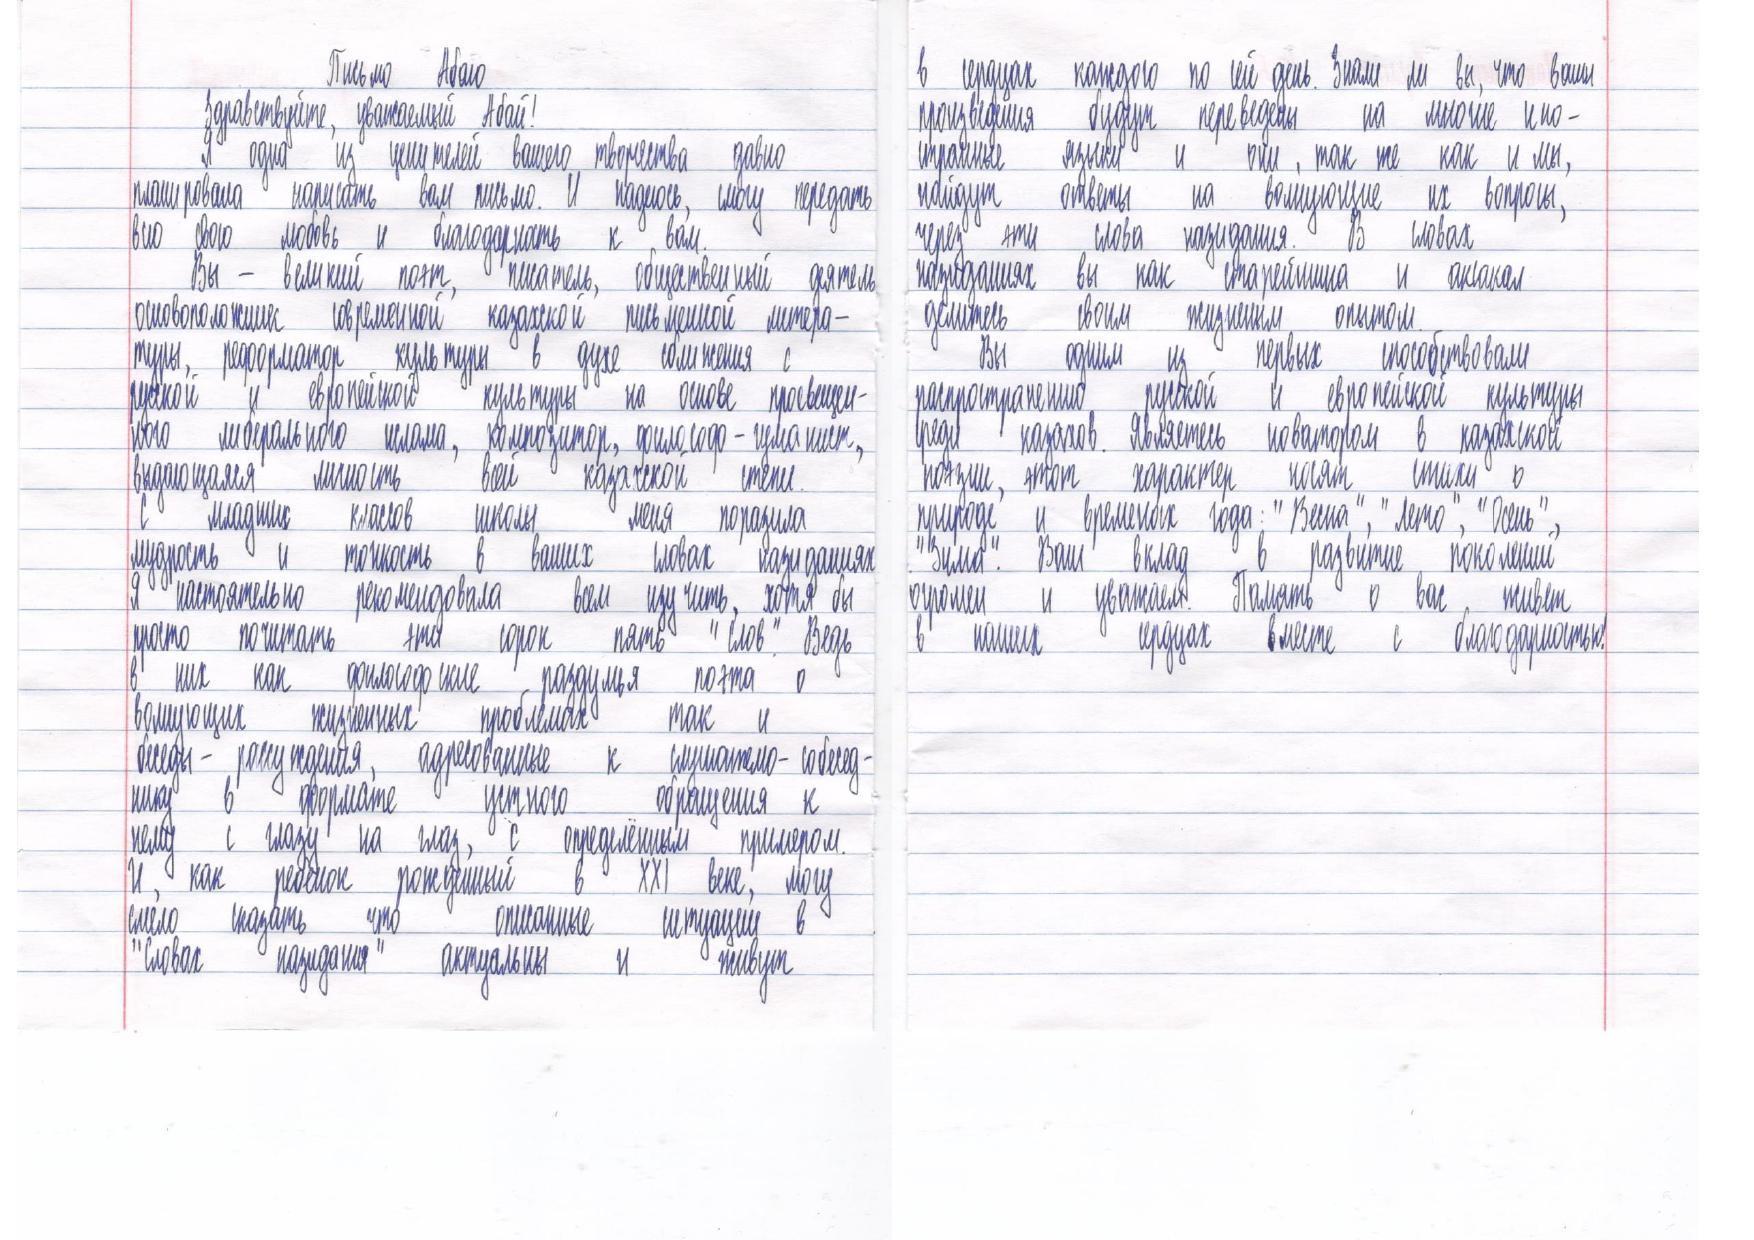 Письмо Абаю
Здравствуйте, уважаемый Абай!
Я одна из ценителей вашего творчества давно
планировала написать вам письмо. И надеюсь, смогу передать
всю свою любовь и благодарность к вам.
Вы – великий поэт, писатель, общественный деятель
основоположник современной казахской письменной литера-
туры, реформатор культуры в духе сближения с
русской и европейской культуры на основе просвещен-
ного либерального ислама, композитор, философ-гуманист,
выдающаяся личность всей казахской степи.
С младших классов школы меня поразила
мудрость и тонкость в ваших словах назиданиях
Я настоятельно рекомендовала всем изучить, хотя бы
просто почитать эти сорок пять "Слов". Ведь
в них как философские раздумья поэта о
волнующих жизненных проблемах так и
беседы-рассуждения, адресованные к слушателю-собесед-
нику в формате устного обращения к
нему с глазу на глаз, с определённым примером.
И, как ребёнок рожденный в XXI веке, могу
смело сказать что описанные ситуаций в
"Словах назидания" актуальны и живут
в сердцах каждого по сей день. Знали ли вы, что ваши
произведения будут переведены на многие ино-
странные языки и они, так же как и мы,
найдут ответы на волнующие их вопросы,
через эти слова назидания. В словах
назиданиях вы как старейшина и аксакал
делитесь своим жизненым опытом.
Вы одним из первых способствовали
распространению русской и европейской культуры
среди казахов. Являетесь новатором в казахской
поэзии, этот характер носят стихи о
природе и временах года: "Весна", "Лето", "Осень",
"Зима". Ваш вклад в развитие поколений
огромен и уважаем. Память о вас живет
в наших сердцах вместе с благодарностью!